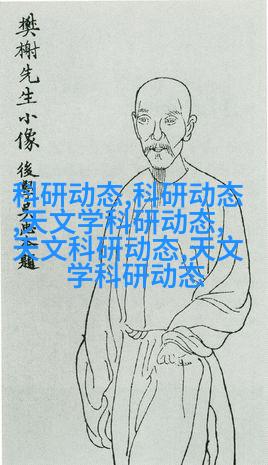 樊榭先生小像
後學吳忠題
科研动态,科研动态
,天文学科研动态,
天文科研动态,天文
学科研动态